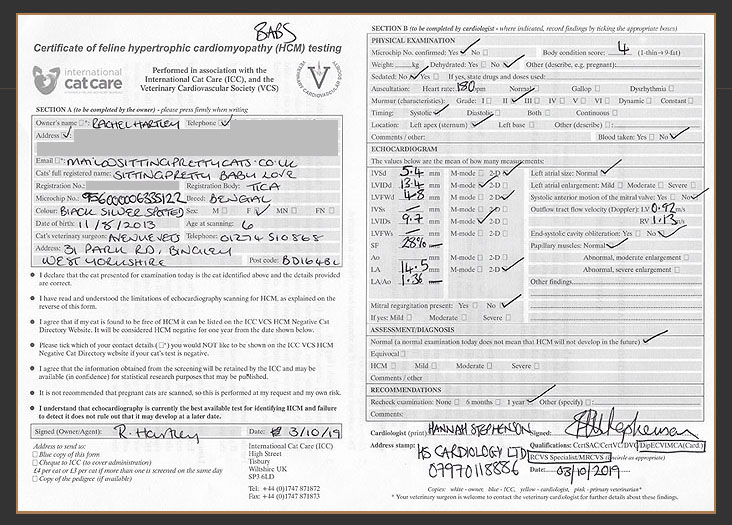 BABS
Certificate of feline hypertrophic cardiomyopathy (HCM) testing
international
cat care
Performed in association with the
International Cat Care (ICC), and the
Veterinary Cardiovascular Society (VCS)
VETERINARY CARDIOVASCULAR SOCIETY
SECTION A (to be completed by the owner) - please press firmly when writing
Owner's name □*: RACHEL HARTLEY Telephone ✓
Address ✓
Email □*: @SITTINGPRETTYCATS.CO.UK
Cats' full registered name: SITTINGPRETTY BABY LOVE
Registration No.: Registration Body: TICA
Microchip No.: 956000006335122 Breed: BENGAL
Colour: BLACK SILVER SPOTTED Sex: M □ F ✓ MN □ FN □
Date of birth: 11/8/2013 Age at scanning: 6
Cat's veterinary surgeon: AVENUE VETS Telephone: 01274 510868
Address: 31 PARK RD, BINGLEY
WEST YORKSHIRE Post code: BD16 4BL
● I declare that the cat presented for examination today is the cat identified above and the details provided
are correct.
● I have read and understood the limitations of echocardiography scanning for HCM, as explained on the
reverse of this form.
● I agree that if my cat is found to be free of HCM it can be listed on the ICC VCS HCM Negative Cat
Directory Website. It will be considered HCM negative for one year from the date shown below.
● Please tick which of your contact details (□*) you would NOT like to be shown on the ICC VCS HCM
Negative Cat Directory website if your cat's test is negative.
● I agree that the information obtained from the screening will be retained by the ICC and may be
available (in confidence) for statistical research purposes that may be published.
● It is not recommended that pregnant cats are scanned, so this is performed at my request and my own risk.
● I understand that echocardiography is currently the best available test for identifying HCM and failure
to detect it does not rule out that it may develop at a later date.
Signed (Owner/Agent): R. Hartley Date: 3/10/19
Address to send to:
□ Blue copy of this form
□ Cheque to ICC (to cover administration)
£4 per cat or £3 per cat if more than one is screened on the same day
□ Copy of the pedigree (if available)
International Cat Care (ICC)
High Street
Tisbury
Wiltshire UK
SP3 6LD
Tel: +44 (0)1747 871872
Fax: +44 (0)1747 871873
SECTION B (to be completed by cardiologist - where indicated, record findings by ticking the appropriate boxes)
PHYSICAL EXAMINATION
Microchip No. confirmed: Yes ✓ No □ Body condition score: 4 (1-thin→9-fat)
Weight: kg Dehydrated: Yes □ No ✓ Other (describe, e.g. pregnant):
Sedated: No ✓ Yes □ If yes, state drugs and doses used:
Auscultation: Heart rate: 180 bpm Normal □ Gallop □ Dysrhythmia □
Murmur (characteristics): Grade: I □ II ✓ III □ IV □ V □ VI □ Dynamic □ Constant □
Timing: Systolic ✓ Diastolic □ Both □ Continuous □
Location: Left apex (sternum) ✓ Left base □ Other (describe) □:
Comments / other: Blood taken: Yes □ No ✓
ECHOCARDIOGRAM
The values below are the mean of how many measurements:
IVSd 5.4 mm M-mode □ 2-D ✓
LVIDd 13.4 mm M-mode ✓ 2-D □
LVFWd 4.8 mm M-mode □ 2-D ✓
IVSs mm M-mode □ 2-D □
LVIDs 9.7 mm M-mode ✓ 2-D □
LVFWs mm M-mode □ 2-D □
SF 28%
Ao mm M-mode □ 2-D □
LA 14.5 mm M-mode □ 2-D ✓
LA/Ao 1.36
Mitral regurgitation present: Yes □ No ✓
If yes: Mild □ Moderate □ Severe □
Left atrial size: Normal ✓
Left atrial enlargement: Mild □ Moderate □ Severe □
Systolic anterior motion of the mitral valve: Yes □ No ✓
Outflow tract flow velocity (Doppler): LV 0.92 m/s
RV 1.13 m/s
End-systolic cavity obliteration: Yes □ No ✓
Papillary muscles: Normal ✓
Abnormal, moderate enlargement □
Abnormal, severe enlargement □
Other findings
ASSESSMENT/DIAGNOSIS
Normal (a normal examination today does not mean that HCM will not develop in the future) ✓
Equivocal □
HCM □ Mild □ Moderate □ Severe □
Comments / other
RECOMMENDATIONS
Recheck examination: None □ 6 months □ 1 year ✓ Other (specify) □:
Comments:
Cardiologist (print): HANNAH STEPHENSON Signed:
Address stamp: HS CARDIOLOGY LTD
07970118886
Qualifications: CertSAC/CertVC/DVC/DipECVIMCA(Card.)
RCVS Specialist/MRCVS (encircle as appropriate)
Date: 03/10/2019
Copies: white - owner, blue - ICC, yellow - cardiologist, pink - primary veterinarian*
* Your veterinary surgeon is welcome to contact the veterinary cardiologist for further details about these findings.